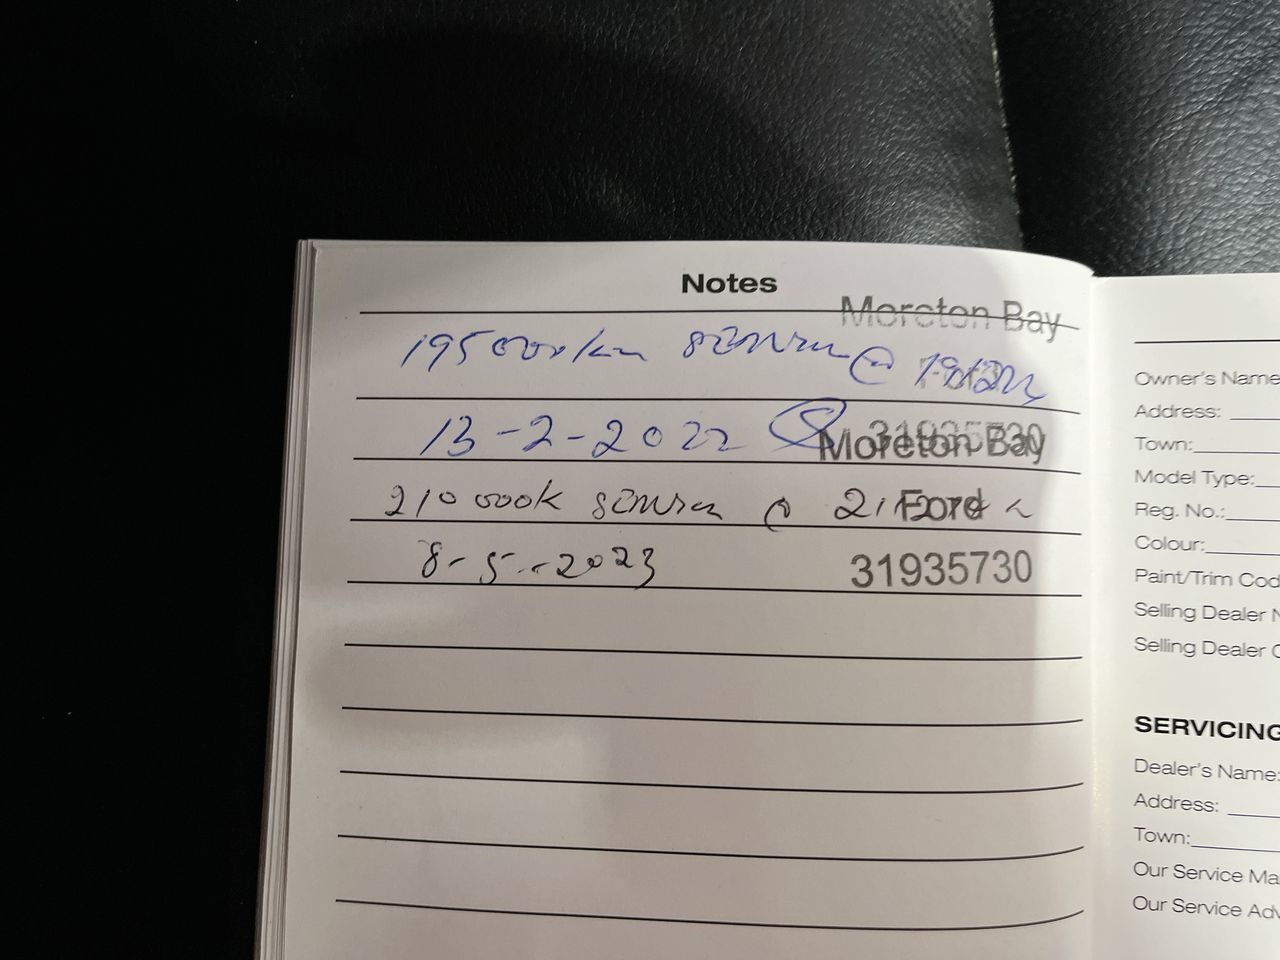 Notes
Moreton Bay
195000km service @
31935730
13-2-2022
Moreton Bay
210000k service @
Ford
8-5-2023
31935730
Owner's Name
Address:
Town:
Model Type:
Reg. No.:
Colour:
Paint/Trim Cod
Selling Dealer N
Selling Dealer
SERVICING
Dealer's Name:
Address:
Town:
Our Service Ma
Our Service Adv